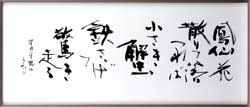 鳳仙花
散りて落つれば
小さき
蟹
鋏さゝげ
驚き
走る